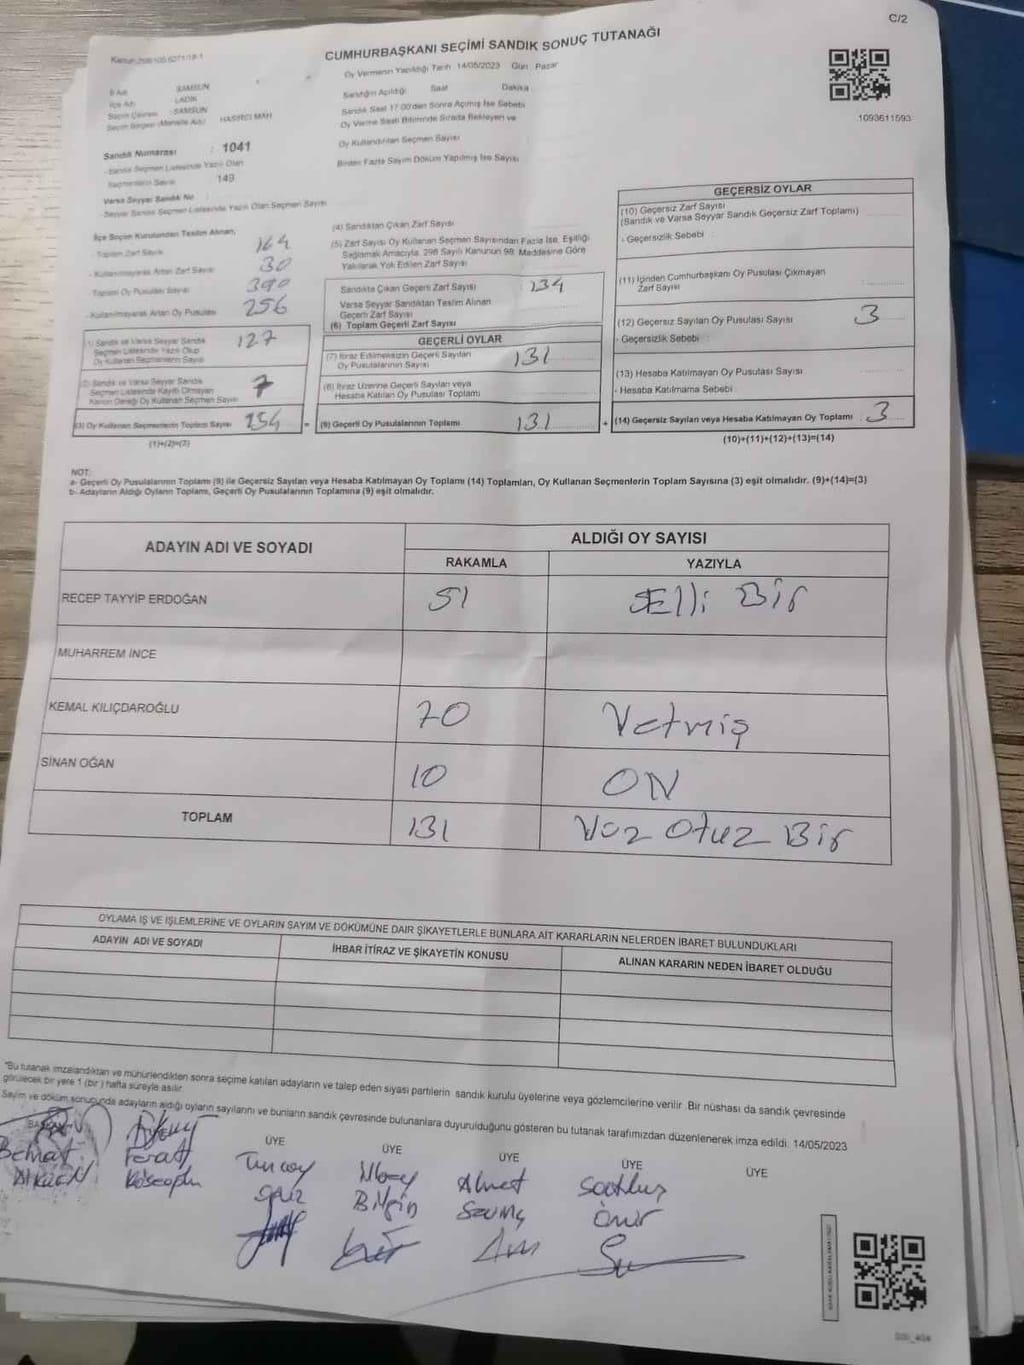 C/2
CUMHURBAŞKANI SEÇİMİ SANDIK SONUÇ TUTANAĞI
Oy Vermenin Yapıldığı Tarih 14/05/2023 Gün : Pazar
Sandığın Açıldığı Saat Dakika
Sandık Saat 17:00'den Sonra Açılmış İse Sebebi
Oy Verme Saati Bitiminde Sırada Bekleyen ve
Oy Kullandırılan Seçmen Sayısı
Birden Fazla Sayım Döküm Yapılmış İse Sayısı
1093611593
İl Adı SAMSUN
İlçe Adı LADİK
Seçim Çevresi SAMSUN
Seçim Bölgesi (Mahalle Adı) HASIRCI MAH
Sandık Numarası : 1041
- Sandık Seçmen Listesinde Yazılı Olan
Seçmenlerin Sayısı 149
Varsa Seyyar Sandık No
- Seyyar Sandık Seçmen Listesinde Yazılı Olan Seçmen Sayısı
İlçe Seçim Kurulundan Teslim Alınan,
- Toplam Zarf Sayısı 164
- Kullanılmayarak Artan Zarf Sayısı 30
Toplam Oy Pusulası Sayısı 390
- Kullanılmayarak Artan Oy Pusulası 256
(1) Sandık ve Varsa Seyyar Sandık
Seçmen Listesinde Yazılı Olup
Oy Kullanan Seçmenlerin Sayısı 127
(2) Sandık ve Varsa Seyyar Sandık
Seçmen Listesinde Kayıtlı Olmayan
Kanun Gereği Oy Kullanan Seçmen Sayısı 7
(3) Oy Kullanan Seçmenlerin Toplam Sayısı =
(1)+(2)=(3)
(4) Sandıktan Çıkan Zarf Sayısı
(5) Zarf Sayısı Oy Kullanan Seçmen Sayısından Fazla İse, Eşitliği
Sağlamak Amacıyla, 298 Sayılı Kanunun 98. Maddesine Göre
Yakılarak Yok Edilen Zarf Sayısı
Sandıkta Çıkan Geçerli Zarf Sayısı : 134
Varsa Seyyar Sandıktan Teslim Alınan
Geçerli Zarf Sayısı
(6) Toplam Geçerli Zarf Sayısı
GEÇERLİ OYLAR
(7) İtiraz Edilmeksizin Geçerli Sayılan
Oy Pusulasının Sayısı 131
(8) İtiraz Üzerine Geçerli Sayılan veya
Hesaba Katılan Oy Pusulası Toplamı
(9) Geçerli Oy Pusulalarının Toplamı 131 +
GEÇERSİZ OYLAR
(10) Geçersiz Zarf Sayısı
(Sandık ve Varsa Seyyar Sandık Geçersiz Zarf Toplamı)
- Geçersizlik Sebebi :
(11) İçinden Cumhurbaşkanı Oy Pusulası Çıkmayan
Zarf Sayısı
(12) Geçersiz Sayılan Oy Pusulası Sayısı 3
- Geçersizlik Sebebi :
(13) Hesaba Katılmayan Oy Pusulası Sayısı
- Hesaba Katılmama Sebebi
(14) Geçersiz Sayılan veya Hesaba Katılmayan Oy Toplamı 3
(10)+(11)+(12)+(13)=(14)
NOT:
a- Geçerli Oy Pusulasının Toplamı (9) ile Geçersiz Sayılan veya Hesaba Katılmayan Oy Toplamı (14) Toplamları, Oy Kullanan Seçmenlerin Toplam Sayısına (3) eşit olmalıdır. (9)+(14)=(3)
b- Adayların Aldığı Oyların Toplamı, Geçerli Oy Pusulalarının Toplamına (9) eşit olmalıdır.
ADAYIN ADI VE SOYADI ALDIĞI OY SAYISI
RAKAMLA YAZIYLA
RECEP TAYYİP ERDOĞAN 51 Elli Bir
MUHARREM İNCE
KEMAL KILIÇDAROĞLU 70 Yetmiş
SİNAN OĞAN 10 ON
TOPLAM 131 Yüz Otuz Bir
OYLAMA İŞ VE İŞLEMLERİNE VE OYLARIN SAYIM VE DÖKÜMÜNE DAİR ŞİKAYETLERLE BUNLARA AİT KARARLARIN NELERDEN İBARET BULUNDUKLARI
ADAYIN ADI VE SOYADI İHBAR İTİRAZ VE ŞİKAYETİN KONUSU ALINAN KARARIN NEDEN İBARET OLDUĞU
*Bu tutanak imzalandıktan ve mühürlendikten sonra seçime katılan adayların ve talep eden siyasi partilerin sandık kurulu üyelerine veya gözlemcilerine verilir. Bir nüshası da sandık çevresinde
görülecek bir yere 1 (bir) hafta süreyle asılır.
Sayım ve döküm sonucunda adayların aldığı oyların sayılarını ve bunların sandık çevresinde bulunanlara duyurulduğunu gösteren bu tutanak tarafımızdan düzenlenerek imza edildi. 14/05/2023
BAŞKAN ÜYE ÜYE ÜYE ÜYE ÜYE
Behçat Ferat Tuncay İlbey Ahmet
Köseoğlu Bilgin
Ömür